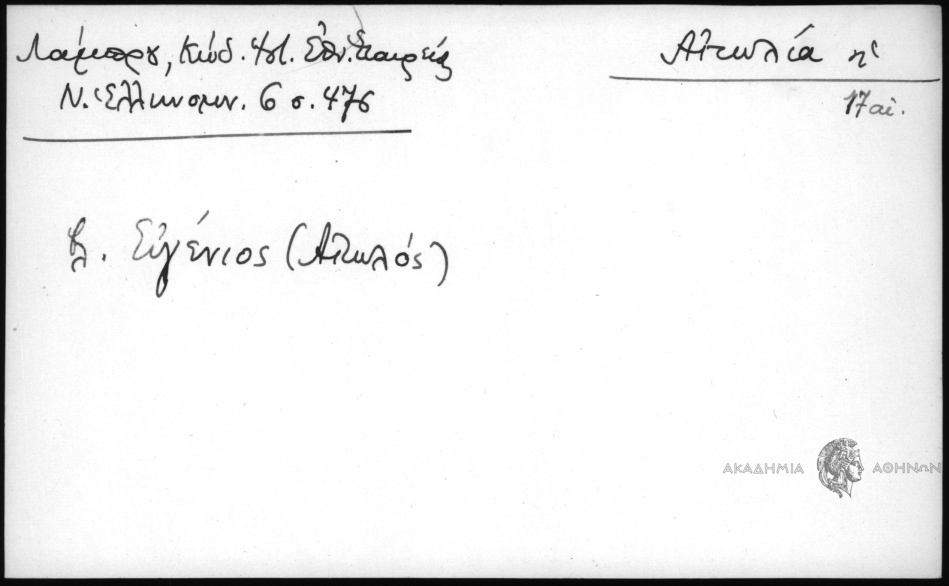 Λάμπρου, Κώδ. Ἐθν. Ἑταιρείας
Ν. Ἑλληνομν. 6 σ. 476
Αἰτωλία ἡ
17 αἰ.
βλ. Εὐγένιος (Αἰτωλός)
ΑΚΑΔΗΜΙΑ ΑΘΗΝΩΝ